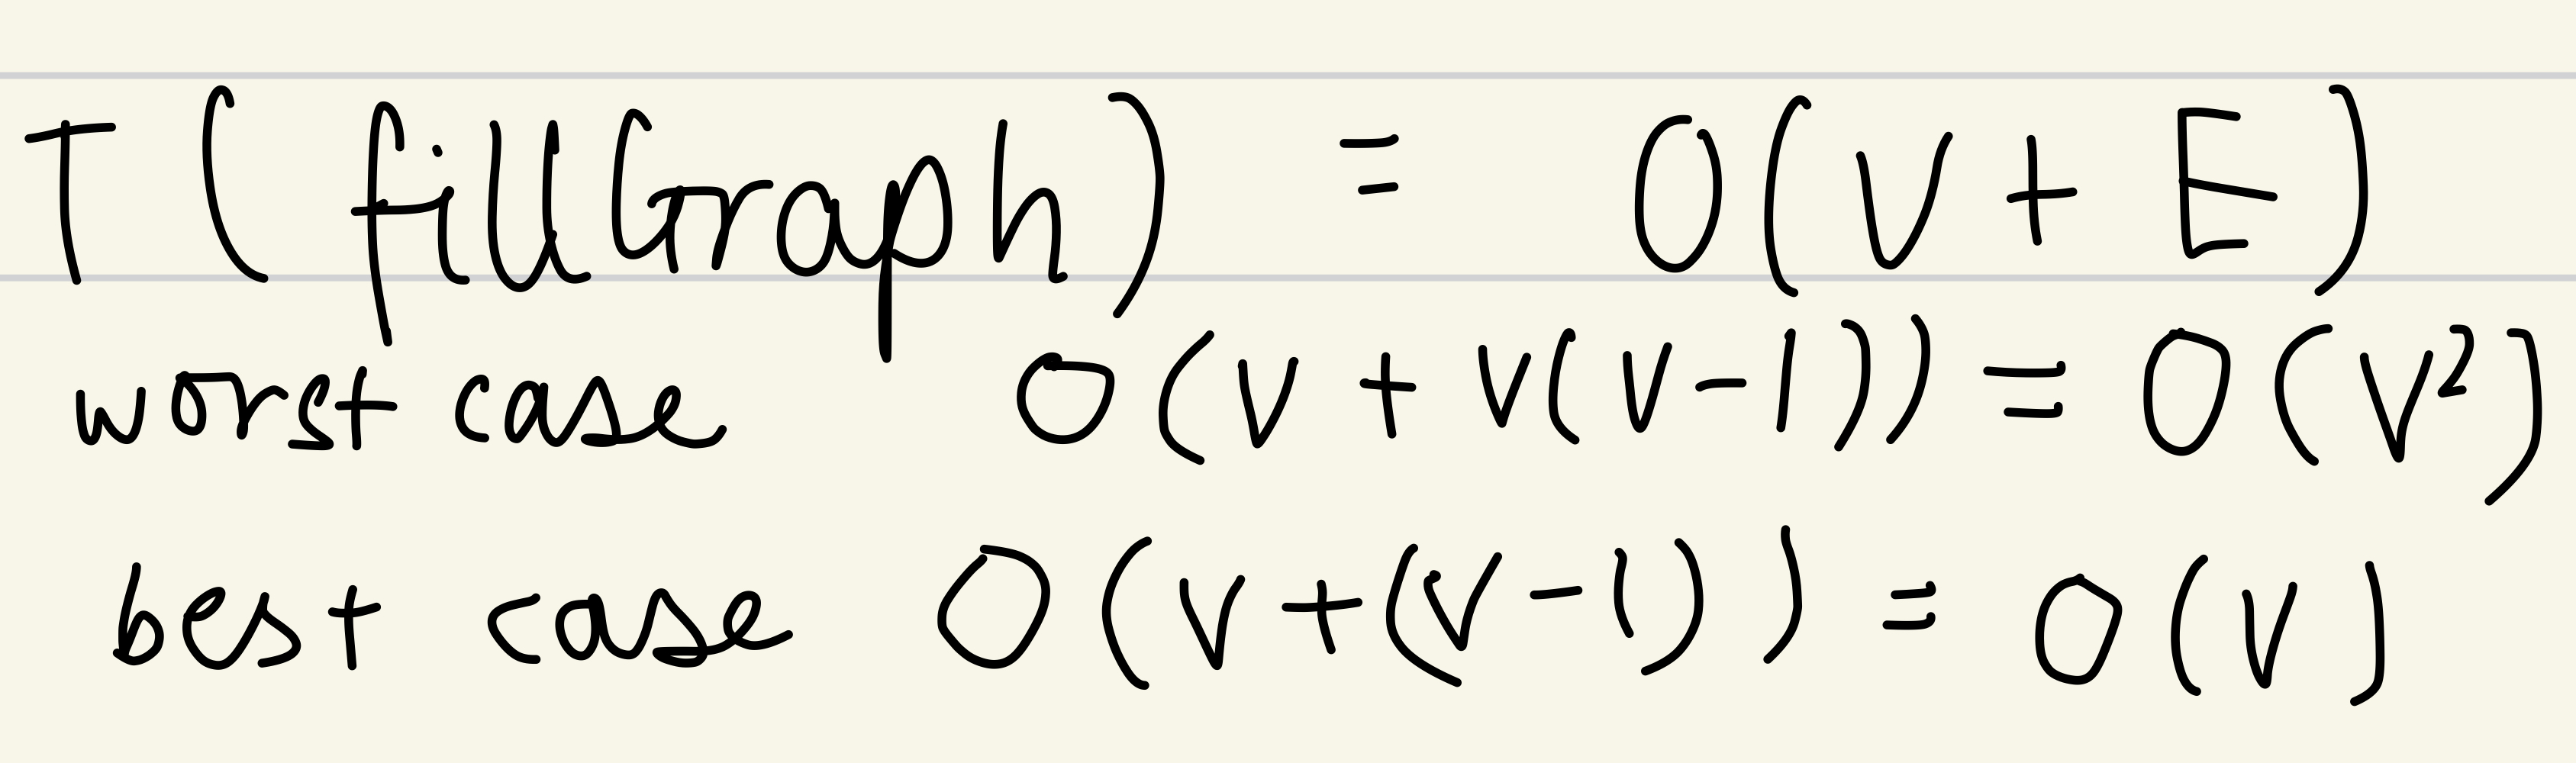 T( fillGraph) = O(V + E)
worst case O(V + V(V-1)) = O(V²)
best case O(V+(V-1)) = O(V)